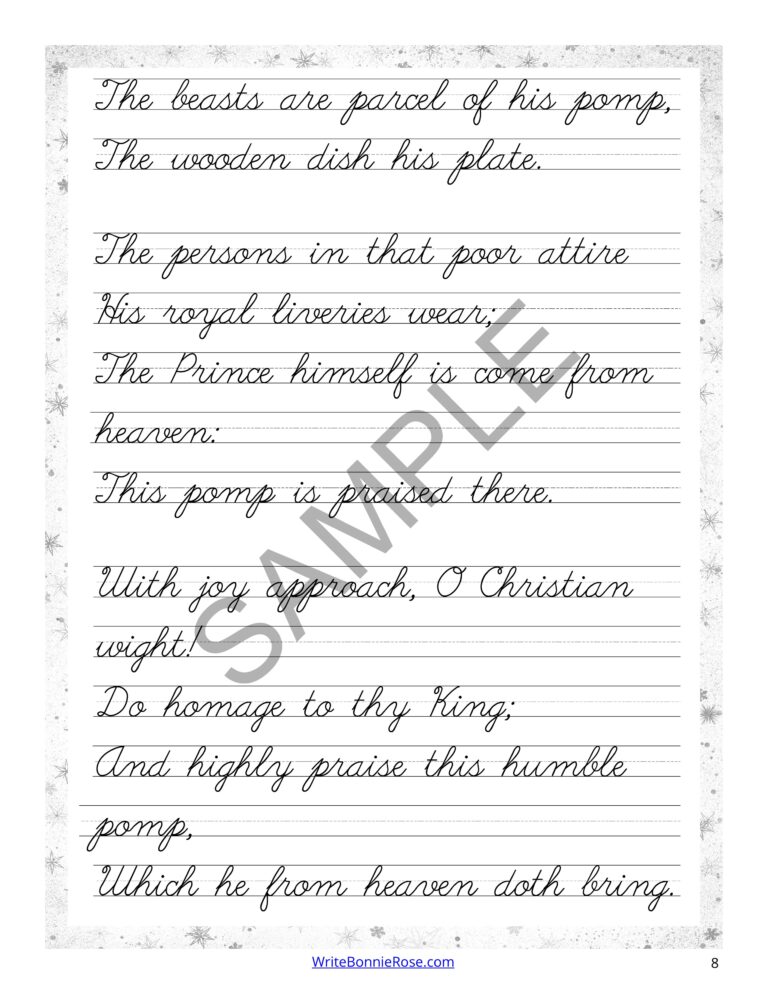 The beasts are parcel of his pomp,
The wooden dish his plate.
The persons in that poor attire
His royal liveries wear;
The Prince himself is come from
heaven:
This pomp is praised there.
With joy approach, O Christian
wight!
Do homage to thy King;
And highly praise this humble
pomp,
Which he from heaven doth bring.
SAMPLE
WriteBonnieRose.com
8